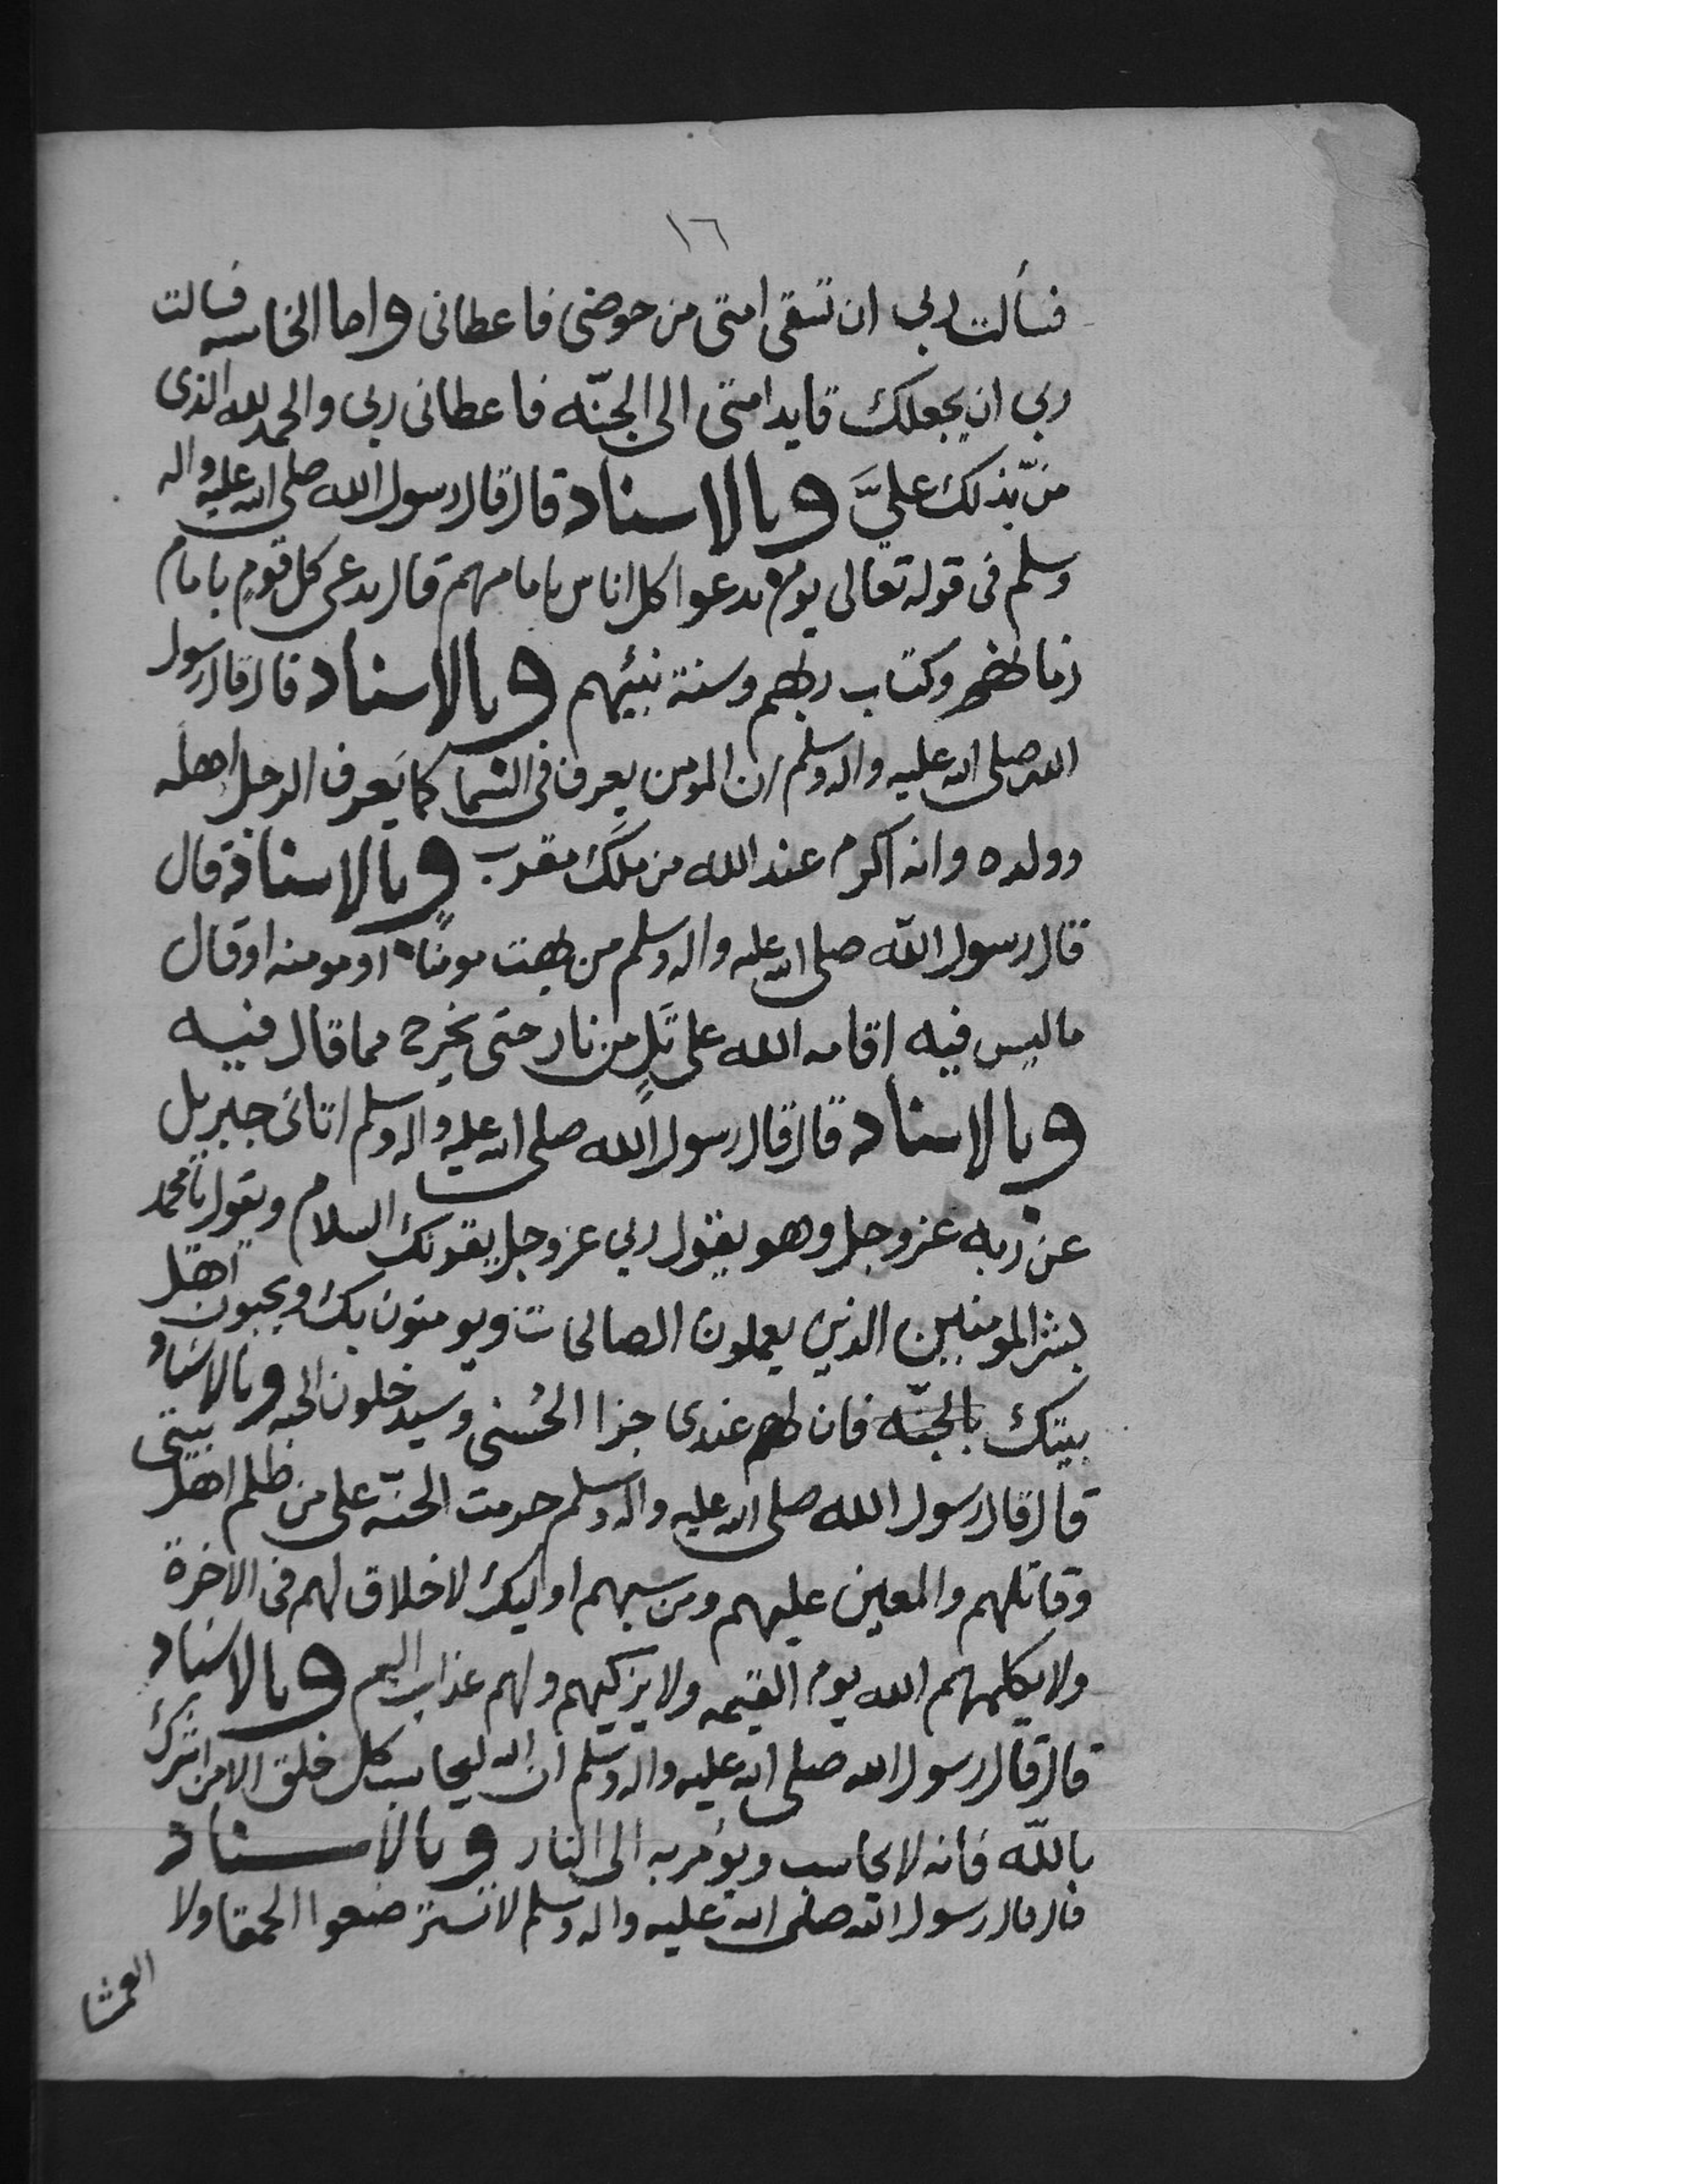 ١٦
فسألت ربي ان تسقى امتى من حوضى فاعطانى واما الخامسه فسالت
ربي ان يجعلك قايد امتى الى الجنّه فاعطانى ربى والحمد لله الذى
منّ بذلك عليَّ وبالاسناد قال قال رسول الله صلى الله عليه واله
وسلم فى قوله تعالى يوم ندعوا كل اناس بامامهم قال يدعى كل قوم بامام
زمانهم وكتاب ربهم وسنة نبيهم وبالاسناد قال قال رسول
الله صلى الله عليه واله وسلم ان المومن يعرف فى السما كما يَعرف الرجل اهله
وولده وانه اكرم عند الله من ملَك مقرب وبالاسناد قال
قال رسول الله صلى الله عليه واله وسلم من بهت مومنًا او مومنه او قال
ما ليس فيه اقامه الله على تَلٍ من نار حتى يخرج مما قال فيه
وبالاسناد قال قال رسول الله صلى الله عليه واله وسلم اتانى جبريل
عن ربه عز وجل وهو يقول ربي عز وجل يقرئك السلام ويقول يا محمد
بشر المومنين الذين يعملون الصالحات ويومنون بك ويحبون اهل
بيتك بالجنّه فان لهم عندى جزا الحُسنى وسيدخلون الجنه وبالاسناد
قال قال رسول الله صلى الله عليه واله وسلم حرمت الجنّه على من ظلم اهل بيتى
وقاتلهم والمعين عليهم ومن سبهم اوليك لا خلاق لهم فى الاخرة
ولا يكلمهم الله يوم القيمه ولا يزكيهم ولهم عذاب اليم وبالاسناد
قال قال رسول الله صلى الله عليه واله وسلم ان الله ليحاسب كل خلق الا من اشرك
بالله فانه لا يحاسب ويؤمر به الى النار وبالاسناد
قال قال رسول الله صلى الله عليه واله وسلم لا تسترضعوا الحمقا ولا
العمشا